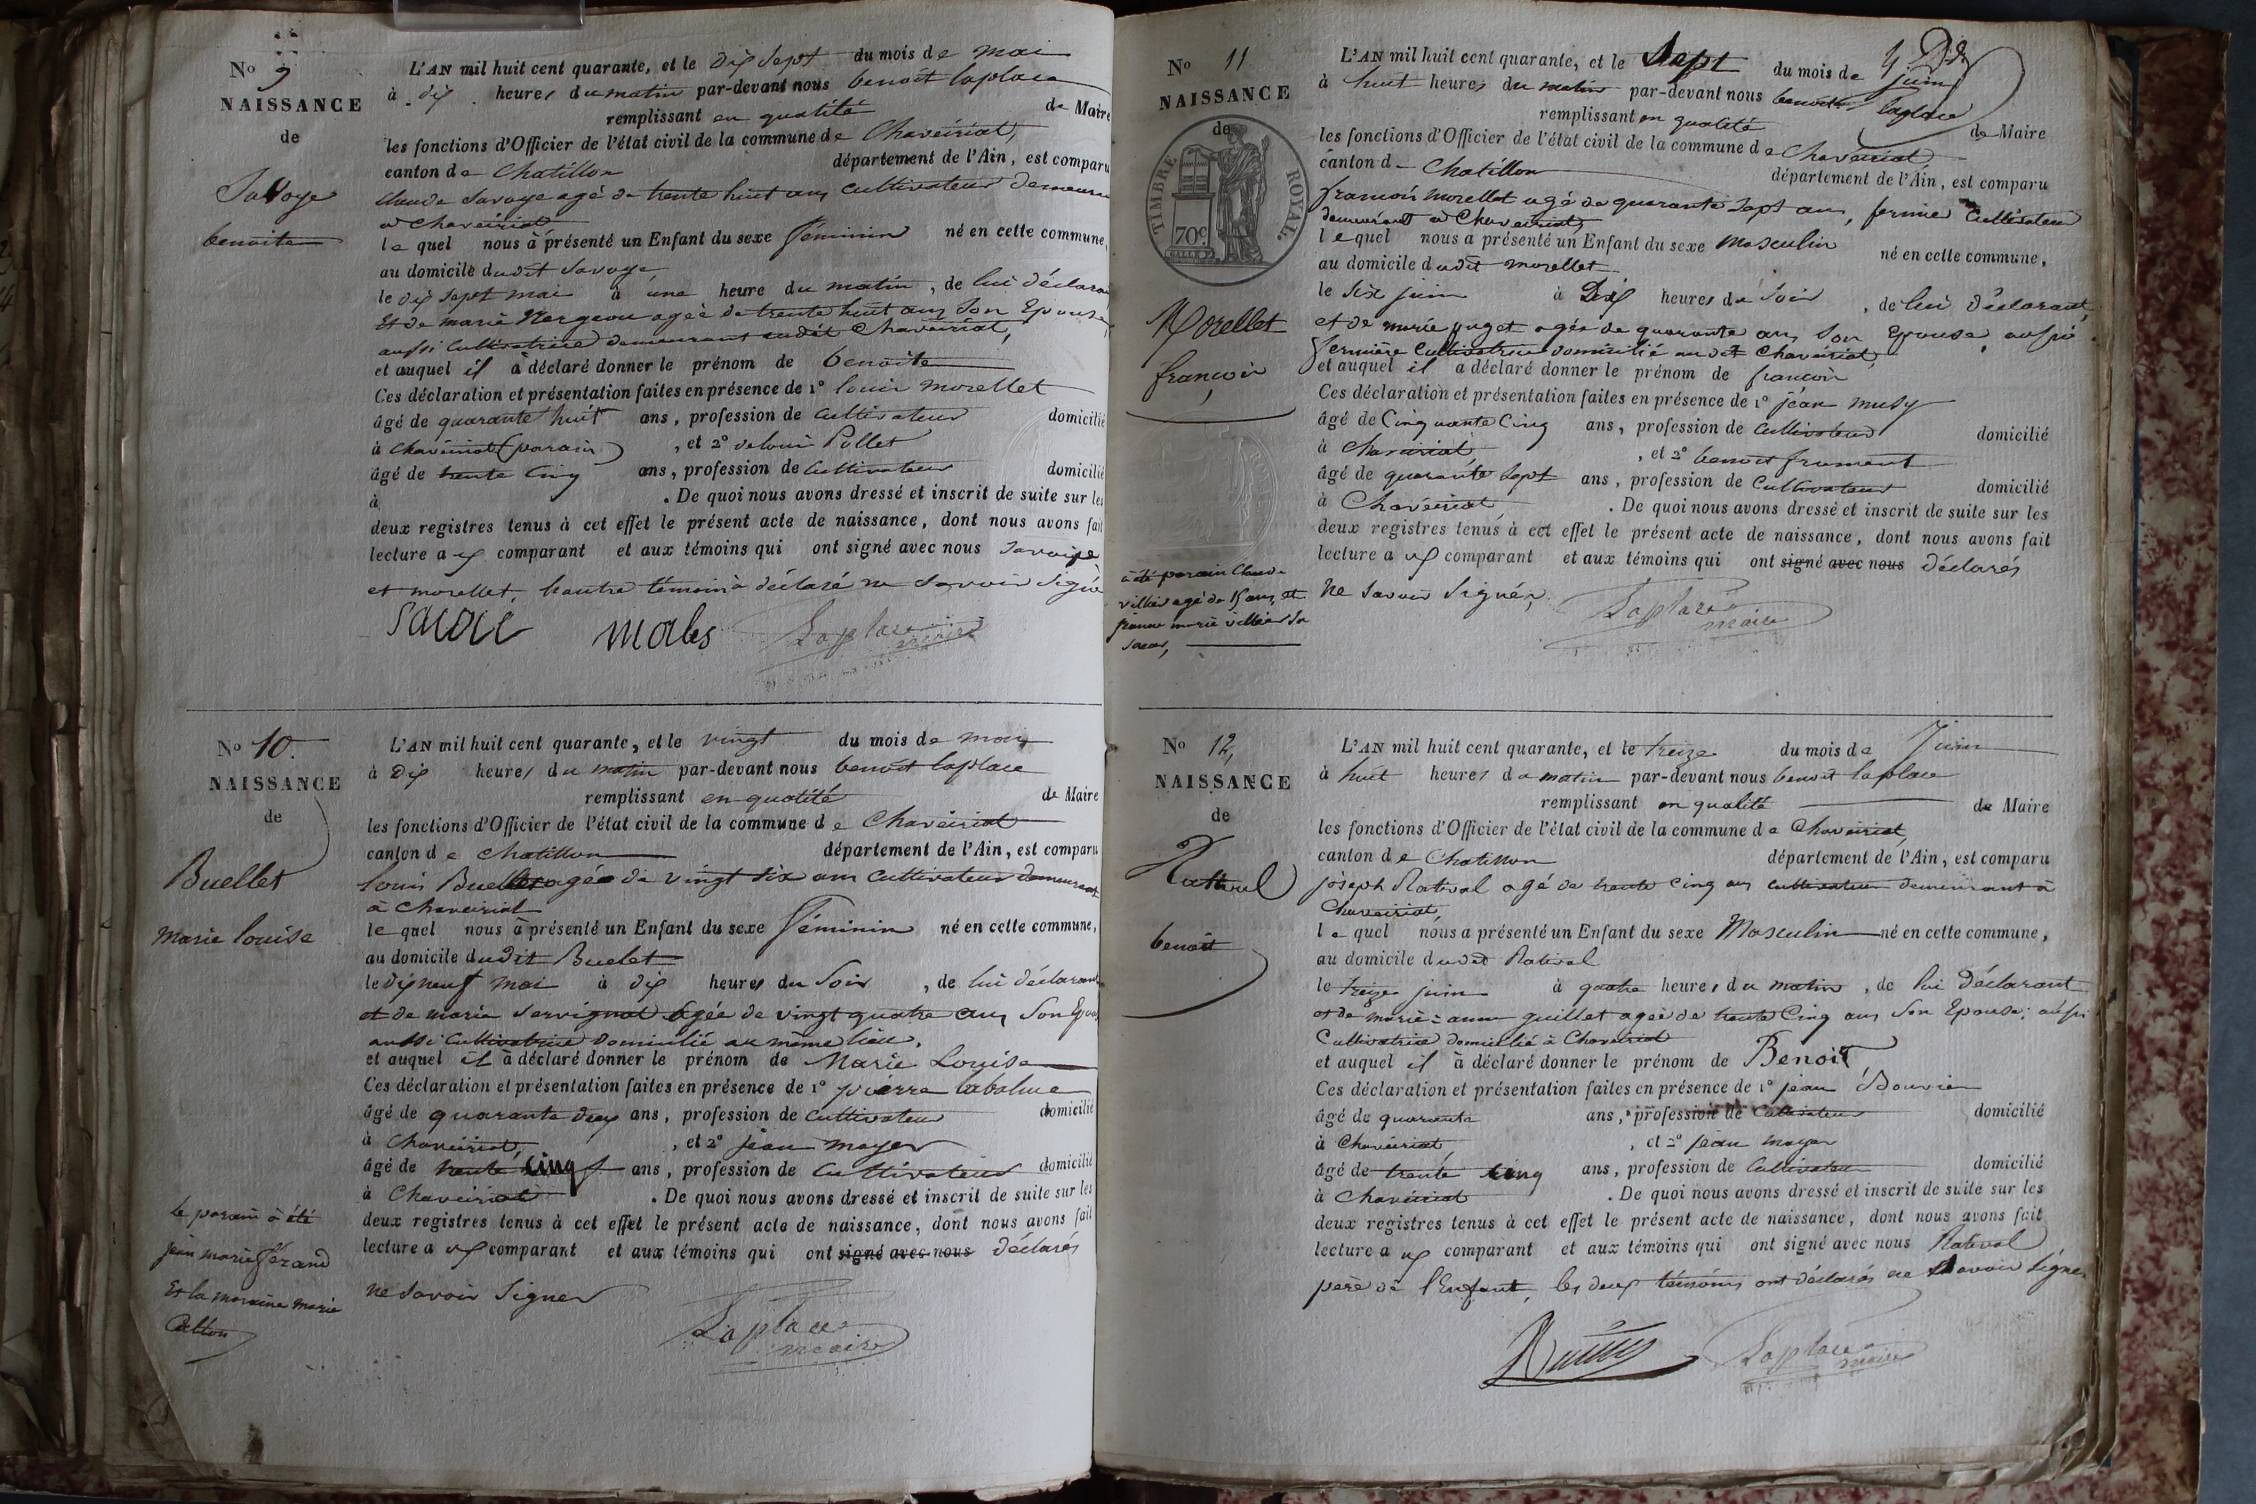 No 9
NAISSANCE
de
Savoye
benoite
L'AN mil huit cent quarante, et le dix sept du mois de mai
à dix heures du matin par-devant nous benoit laplace
remplissant en qualité de Maire
les fonctions d'Officier de l'état civil de la commune de Chaveiriat,
canton de Chatillon département de l'Ain, est comparu
Claude Savoye agé de trente huit ans cultivateur demeurant
a Chaveiriat
le quel nous à présenté un Enfant du sexe féminin né en cette commune,
au domicile dudit Savoye,
le dix sept mai à une heure du matin, de lui déclarant
Et de marie agée de trente huit ans Son Epouse,
aussi Cultivatrice demeurant audit Chaveiriat,
et auquel il à déclaré donner le prénom de benoite
Ces déclaration et présentation faites en présence de 1° louis morellet
âgé de quarante huit ans, profession de Cultivateur domicilié
à Chaveiriat (parain) , et 2° de louis Pollet
âgé de trente Cinq ans, profession de Cultivateur domicilié
à . De quoi nous avons dressé et inscrit de suite sur les
deux registres tenus à cet effet le présent acte de naissance, dont nous avons fait
lecture a comparant et aux témoins qui ont signé avec nous
et morellet, l'autre témoin à déclaré ne Savoir Signé
Laplace
maire
No 10.
NAISSANCE
de
Buellet
Marie louise
le parain à été
jean marie férand
Et la maraine marie
L'AN mil huit cent quarante, et le vingt du mois de mai
à Dix heures du matin par-devant nous benoit laplace
remplissant en qualité de Maire
les fonctions d'Officier de l'état civil de la commune de Chaveiriat
canton de Chatillon département de l'Ain, est comparu
louis Buellet agée de vingt six ans Cultivateur demeurant
à Chaveiriat
le quel nous à présenté un Enfant du sexe Féminin né en cette commune,
au domicile dudit Buelet
le dix neuf mai à dix heures du Soir, de lui déclarant
et de marie Servignat agée de vingt quatre ans, Son Epouse
aussi Cultivatrice Domicilié au même lieu,
et auquel il à déclaré donner le prénom de Marie Louise
Ces déclaration et présentation faites en présence de 1° pierre labalme
âgé de quarante deux ans, profession de Cultivateur domicilié
à Chaveiriat, , et 2° jean moyer
âgé de trente Cinq ans, profession de Cultivateur domicilié
à Chaveiriat . De quoi nous avons dressé et inscrit de suite sur les
deux registres tenus à cet effet le présent acte de naissance, dont nous avons fait
lecture a comparant et aux témoins qui ont signé avec nous déclarés
ne Savoir Signer
Laplace
maire
No 11
NAISSANCE
de
TIMBRE ROYAL.
70c
Morellet
françois
à été parain Claude
villier agé de 15 ans, et
marie villier Sa
Soeur,
L'AN mil huit cent quarante, et le Sept du mois de juin
à huit heures du matin par-devant nous benoit laplace
remplissant en qualité de Maire
les fonctions d'Officier de l'état civil de la commune de Chaveiriat,
canton d Chatillon département de l'Ain, est comparu
françois morellet agé de quarante Sept ans, fermier Cultivateur
demeurant a Chaveiriat,
le quel nous a présenté un Enfant du sexe masculin né en cette commune,
au domicile dudit morellet
le Six juin à Dix heures du Soir, de lui déclarant,
et de marie puget agée de quarante ans Son Epouse, aussi
fermière Cultivatrice domicilié audit Chaveiriat,
et auquel il a déclaré donner le prénom de françois
Ces déclaration et présentation faites en présence de 1° jean musy
âgé de Cinquante Cinq ans, profession de Cultivateur domicilié
à Chaveiriat, , et 2° benoit froment
âgé de quarante Sept ans, profession de Cultivateur domicilié
à Chaveiriat, . De quoi nous avons dressé et inscrit de suite sur les
deux registres tenus à cet effet le présent acte de naissance, dont nous avons fait
lecture a comparant et aux témoins qui ont signé avec nous déclarés
ne Savoir Signer,
Laplace
maire
No 12,
NAISSANCE
de
benoit
L'AN mil huit cent quarante, et le treize du mois de Juin
à huit heures du matin par-devant nous benoit laplace
remplissant en qualité de Maire
les fonctions d'Officier de l'état civil de la commune de Chaveiriat,
canton de Chatillon département de l'Ain, est comparu
joseph Rativel agé de trente Cinq ans cultivateur demeurant à
Chaveiriat,
le quel nous a présenté un Enfant du sexe Masculin né en cette commune,
au domicile dudit Rativel
le treize juin à quatre heures du matin, de lui déclarant
et de marie-anne guillet agée de trente Cinq ans Son Epouse, aussi
Cultivatrice domicilié à Chaveiriat
et auquel il à déclaré donner le prénom de Benoit
Ces déclaration et présentation faites en présence de 1° jean Bouvier
âgé de quarante ans, profession de Cultivateur domicilié
à Chaveiriat, , et 2° jean moyer
âgé de trente Cinq ans, profession de Cultivateur domicilié
à Chaveiriat . De quoi nous avons dressé et inscrit de suite sur les
deux registres tenus à cet effet le présent acte de naissance, dont nous avons fait
lecture a comparant et aux témoins qui ont signé avec nous Rativel
père de l'Enfant, les deux témoins ont déclarés ne Savoir Signer
Laplace
maire